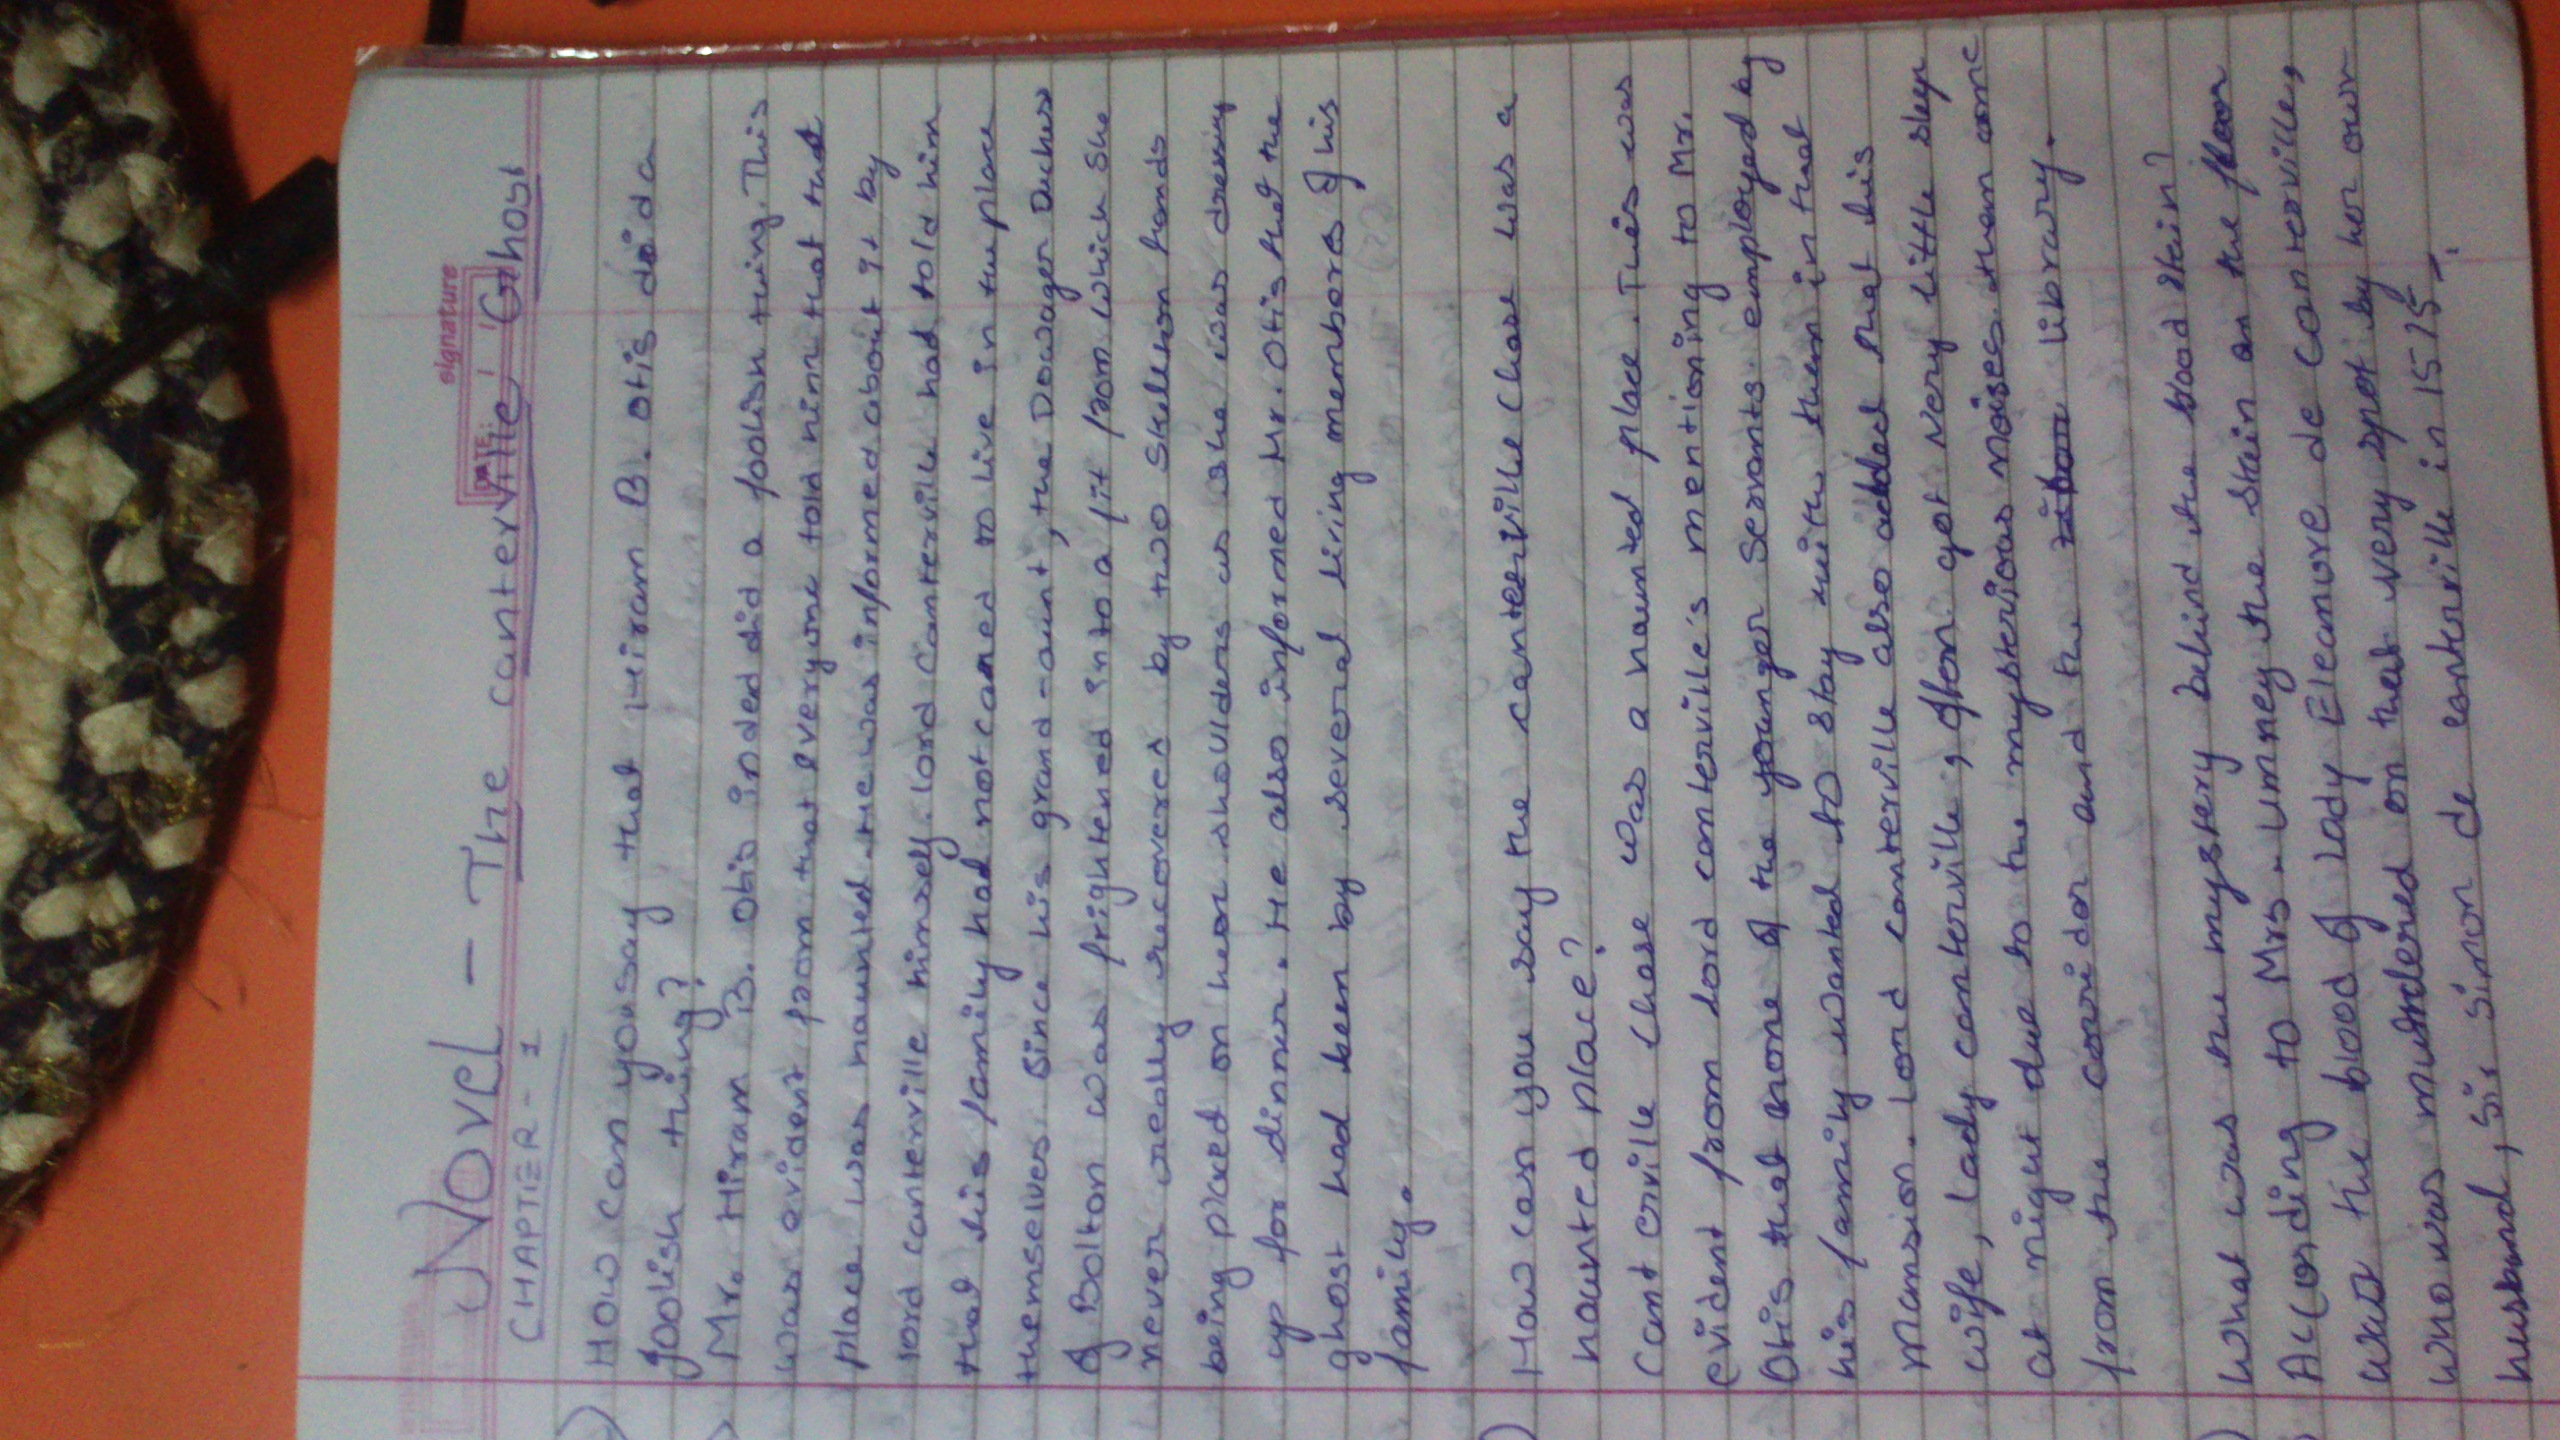 signature
DATE:
Novel - The canterville Ghost
CHAPTER - 1
How can you say that Hiram B. Otis did a
foolish thing?
Mr. Hiram B. Otis inded did a foolish thing. This
was evident from that everyone told him that that
place was haunted. He was informed about it by
lord canterville himself. lord Canterville had told him
that his family had not cared to live in the place
themselves. Since his grand-aunt, the Dowager Duchess
of Bolton was frightened into a fit from which she
never really recovered by two skeleton hands
being placed on her shoulders as she was dressing
up for dinner. He also informed Mr. Otis that the
ghost had been by several living members of his
family.
How can you say the canterville Chase was a
haunted place?
Canterville Chase was a haunted place. This was
evident from lord canterville's mentioning to Mr.
Otis that none of the younger servants employed by
his family wanted to stay with them in that
mansion. Lord canterville also added that his
wife, lady canterville, often got very little sleep
at night due to the mysterious noises them came
from the corridor and the library.
What was the mystery behind the blood stain?
According to Mrs. Umney the stain on the floor
was the blood of lady Eleanore de canterville,
who was murdered on that very spot by her own
husband, Sir Simon de canterville in 1575.